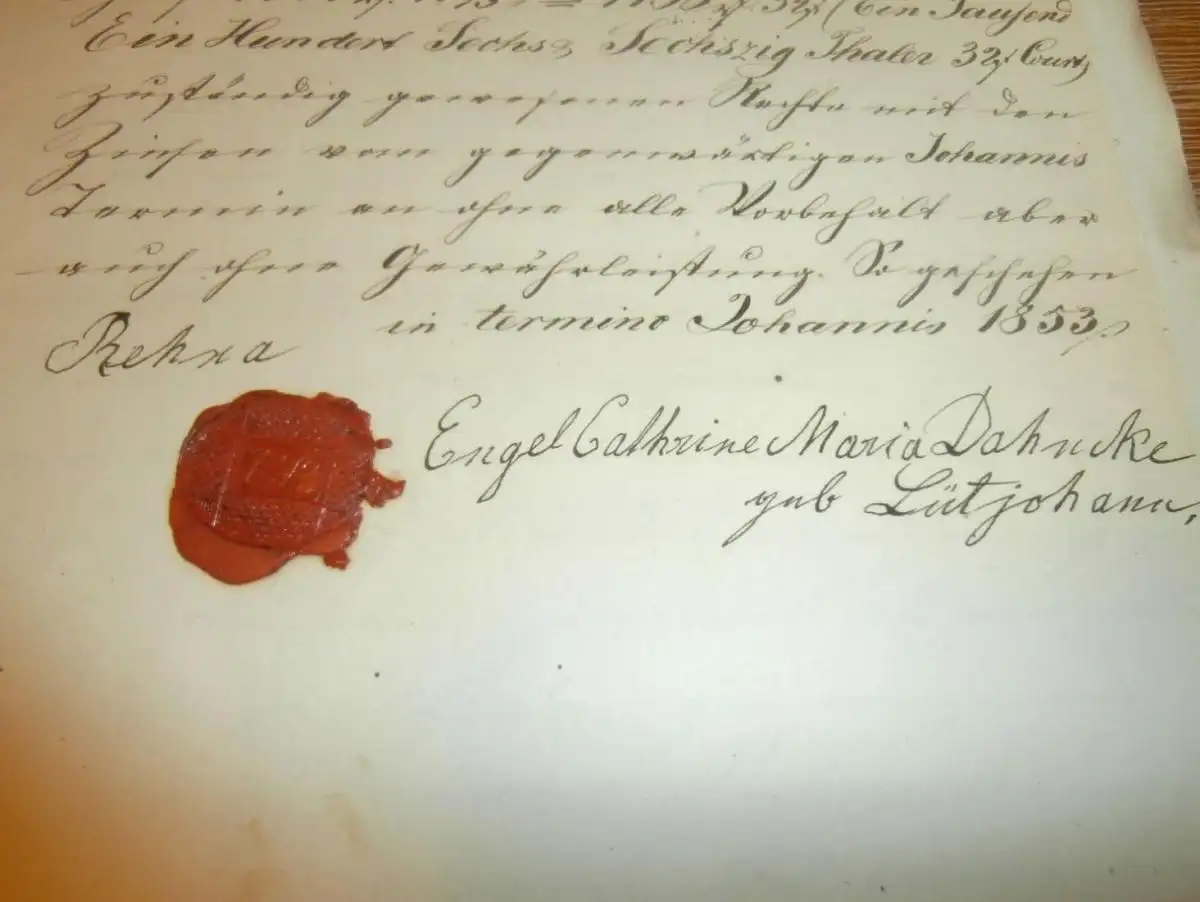 32 (Ein Tausend
Ein Hundert Sechs & Sechszig Thaler 32 ß Court)
zuständig gewesenen Rechte mit den
Zinsen vom gegenwärtigen Johannis
Termin an ohne alle Vorbehalt aber
auch ohne Gewährleistung. So geschehen
in termino Johannis 1853
Rehna
Engel Cathrine Maria Dahncke
geb Lütjohann,